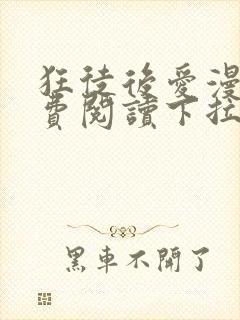 狂徒後愛漫
費閱讀下拉
黑車不開了